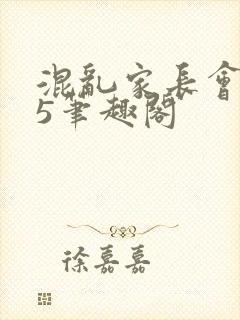 混亂家長會
5筆趣閣
徐嘉嘉